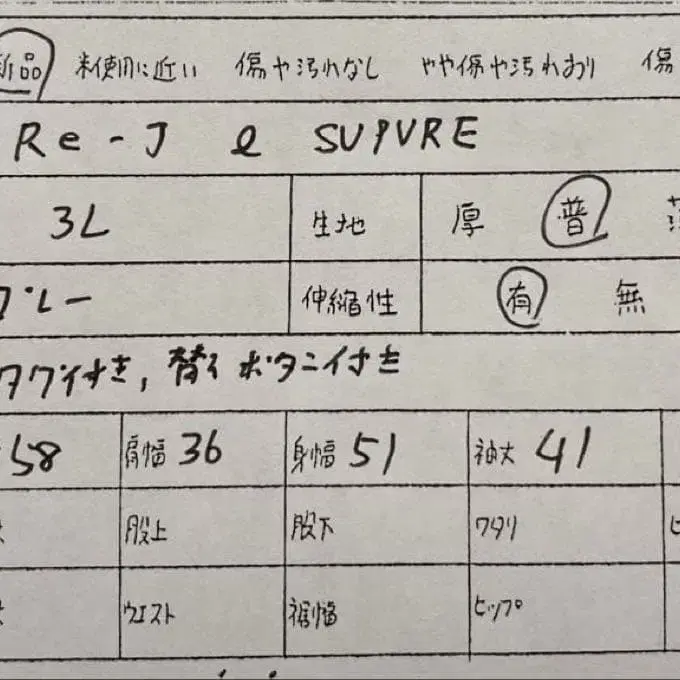 新品 未使用に近い 傷や汚れなし やや傷や汚れあり 傷
Re-J & SUPURE
3L 生地 厚 普
グレー 伸縮性 有 無
タグ付き, 替えボタン付き
58 肩幅 36 身幅 51 袖丈 41
股上 股下 ワタリ
ウエスト 裾幅 ヒップ